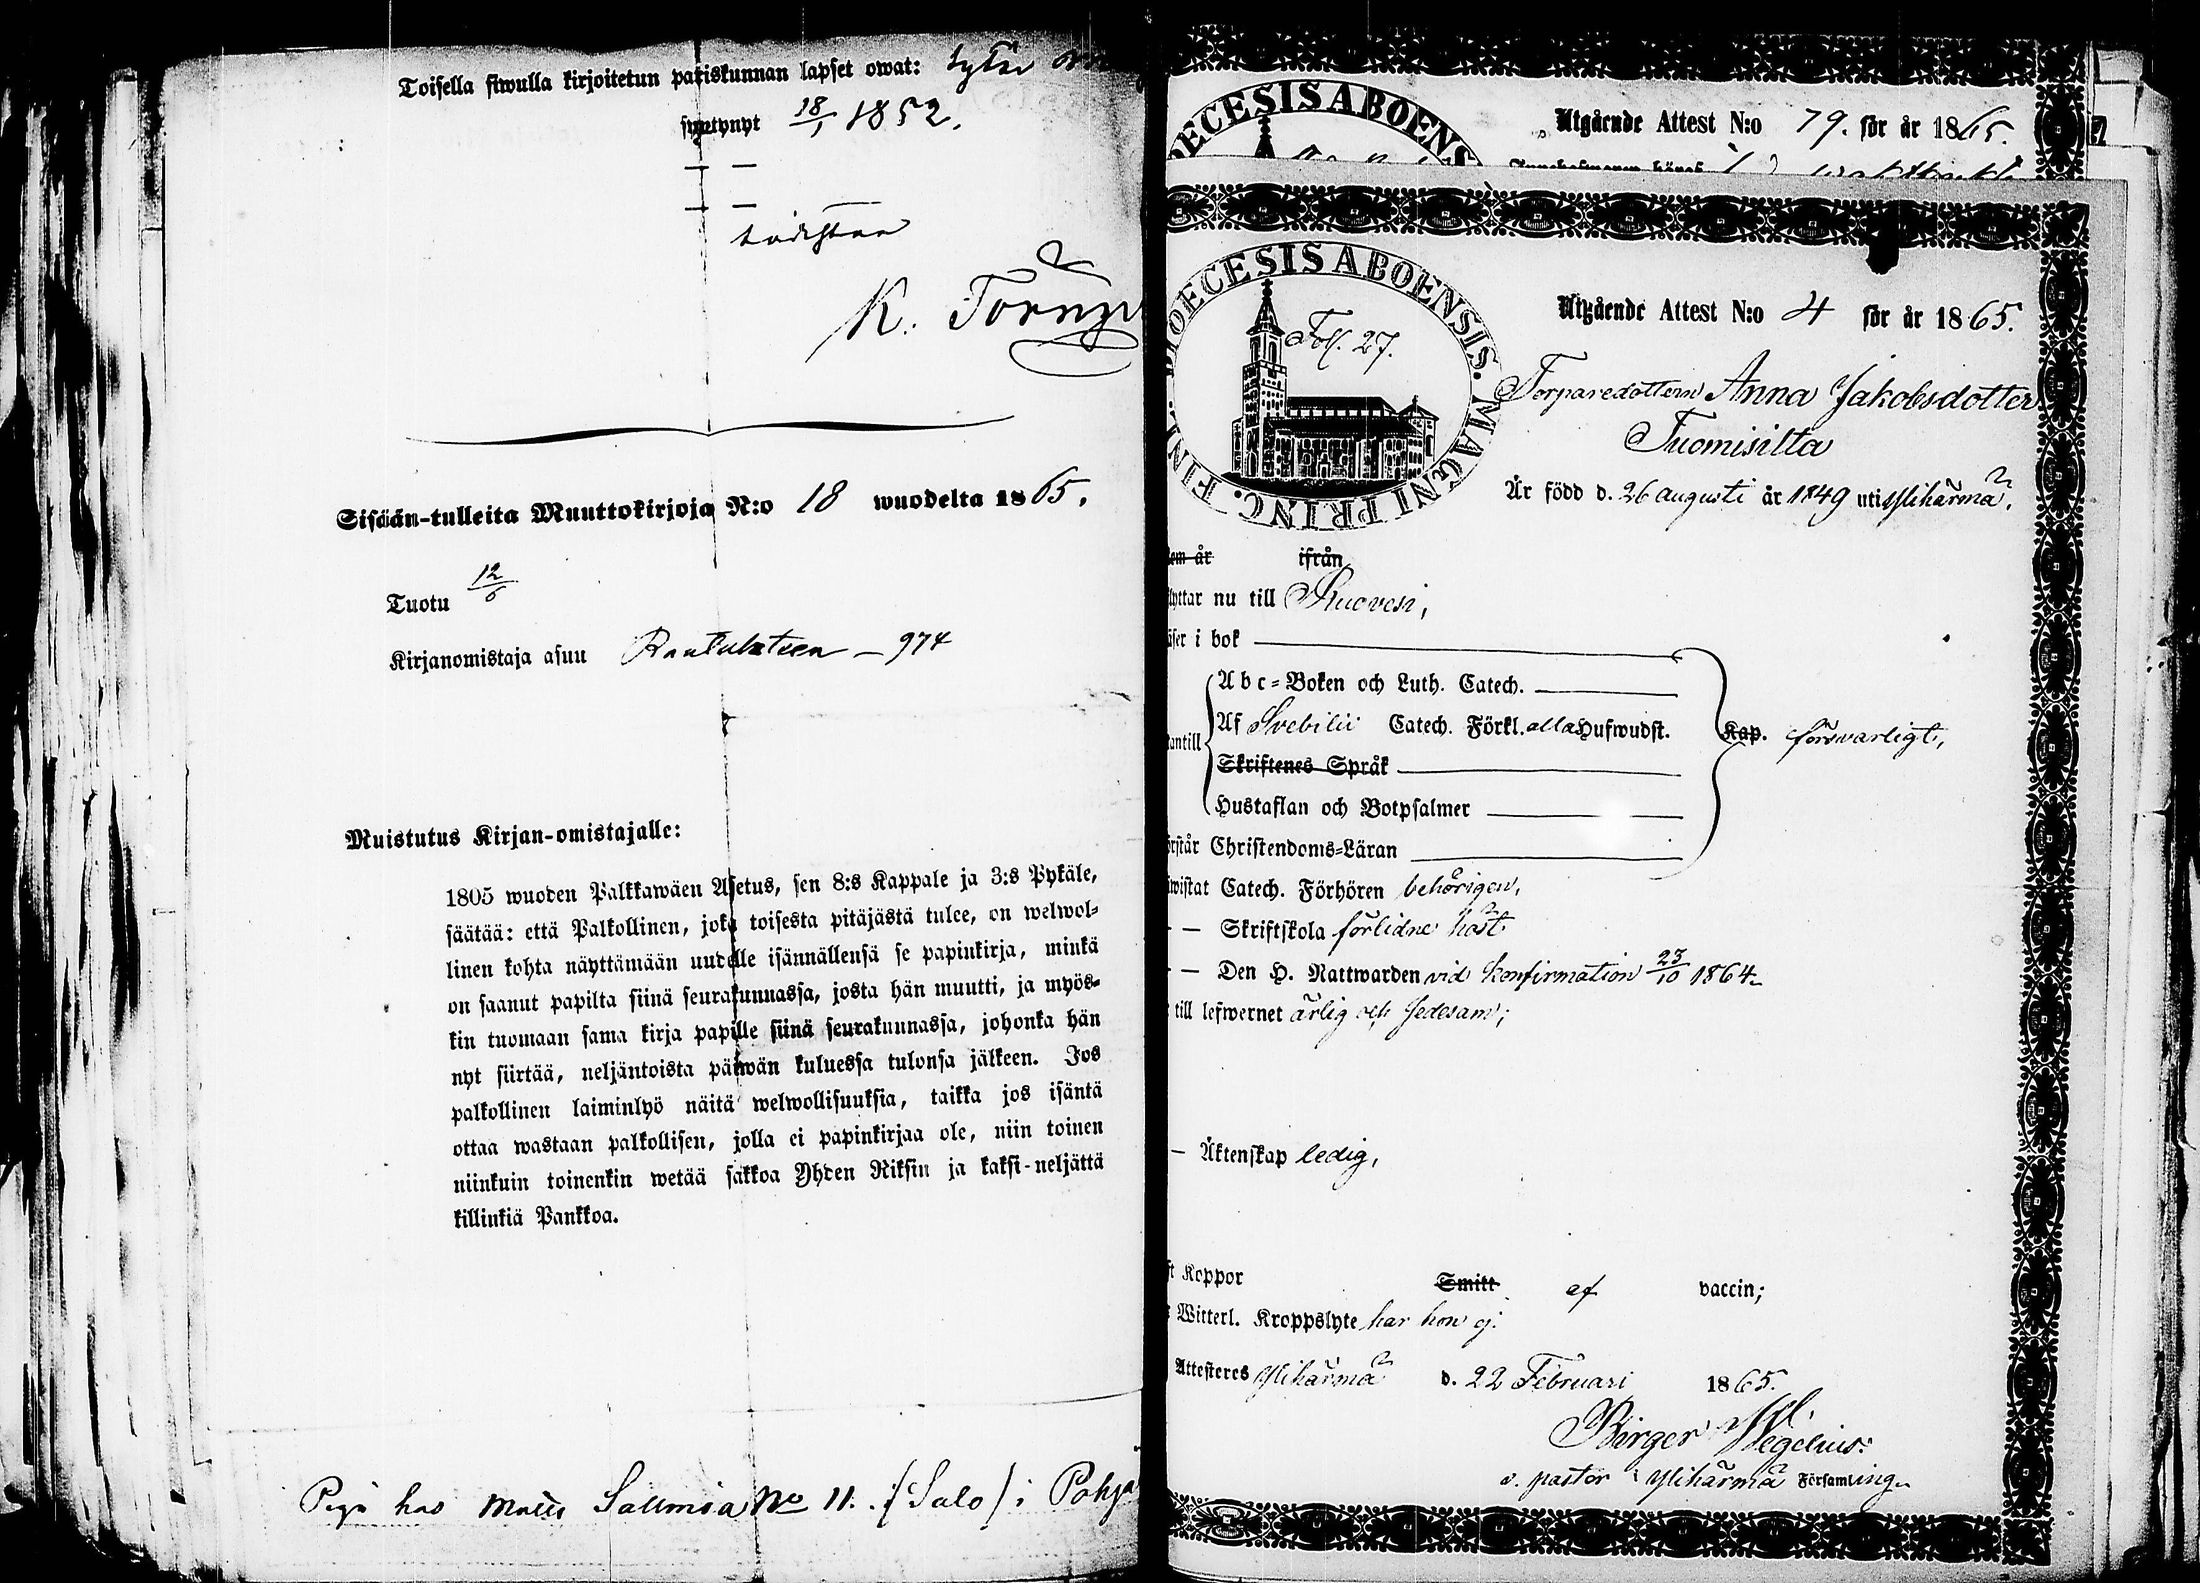 Toisella siwulla kirjoitetun pariskunnan lapset owat: tytär
syntynyt 18/1 1852.
— —
— —
todistaa
K.
Sisään-tulleita Muuttokirjoja N:o 18 wuodelta 1865.
Tuotu 12/6
Kirjanomistaja asuu Rautulateen — 974
Muistutus Kirjan-omistajalle:
1805 wuoden Palkkawäen Asetus, sen 8:s Kappale ja 3:s Pykäle,
säätää: että Palkollinen, joka toisesta pitäjästä tulee, on welwol-
linen kohta näyttämään uudelle isännällensä se papinkirja, minkä
on saanut papilta siinä seurakunnassa, josta hän muutti, ja myös-
kin tuomaan sama kirja papille siinä seurakunnassa, johonka hän
nyt siirtää, neljäntoista päiwän kuluessa tulonsa jälkeen. Jos
palkollinen laiminlyö näitä welwollisuuksia, taikka jos isäntä
ottaa wastaan palkollisen, jolla ei papinkirjaa ole, niin toinen
niinkuin toinenkin wetää sakkoa Yhden Riksin ja kaksi-neljättä
killinkiä Pankkoa.
Piga hos Matts Sallmèa No 11. (Salo) i Pohja
DECESIS ABOENS
Utgående Attest N:o 79. för år 1865.
DIOECESIS ABOENSIS. MAGNI PRINC. FINL.
Fol. 27.
Utgående Attest N:o 4 för år 1865.
Torparedottern Anna Jakobsdotter
Tuomisilta
Är född d. 26 augusti år 1849 uti Ylihärmä,
år ifrån
nu till Ruovesi,
i bok
Abc-Boken och Luth. Catech.
Af Svebilii Catech. Förkl. alla Hufwudst.
Kap. försvarligt,
Skriftenes Språk
Hustaflan och Botpsalmer
Christendoms-Läran
Catech. Förhören behörigen,
— Skriftskola förlidne höst
— Den H. Nattwarden vid konfirmation 23/10 1864.
till lefwernet ärlig och sedesam;
— Äktenskap ledig,
Koppor Smitt af vaccin;
Witterl. Kroppslyte har hon ej.
Attesteres Ylihärmä d. 22 Februari 1865.
Birger Wegelius.
v. pastor i Ylihärmä Församling.